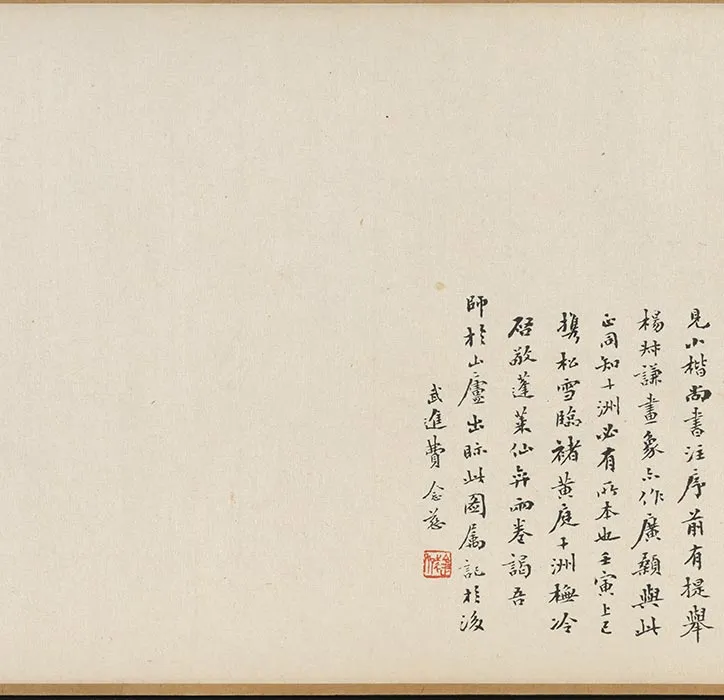 見小楷尚書注序前有提舉
楊叔謙畫象亦作廣顙與此
正同知十洲必有所本也壬寅上巳
攜松雪臨褚黃庭十洲橅冷
启敬蓬萊仙弈兩卷謁吾
師於山廬出眎此圖屬記於後
武進費念慈